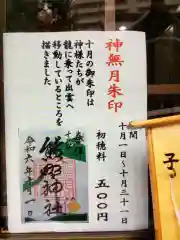 神無月朱印
期間
十月一日〜十月三十一日
初穂料
五〇〇円
十月の御朱印は
神様たちが
龍に乗って出雲へ
移動しているところを
描きました
熊野神社
令和六年十月一日
子